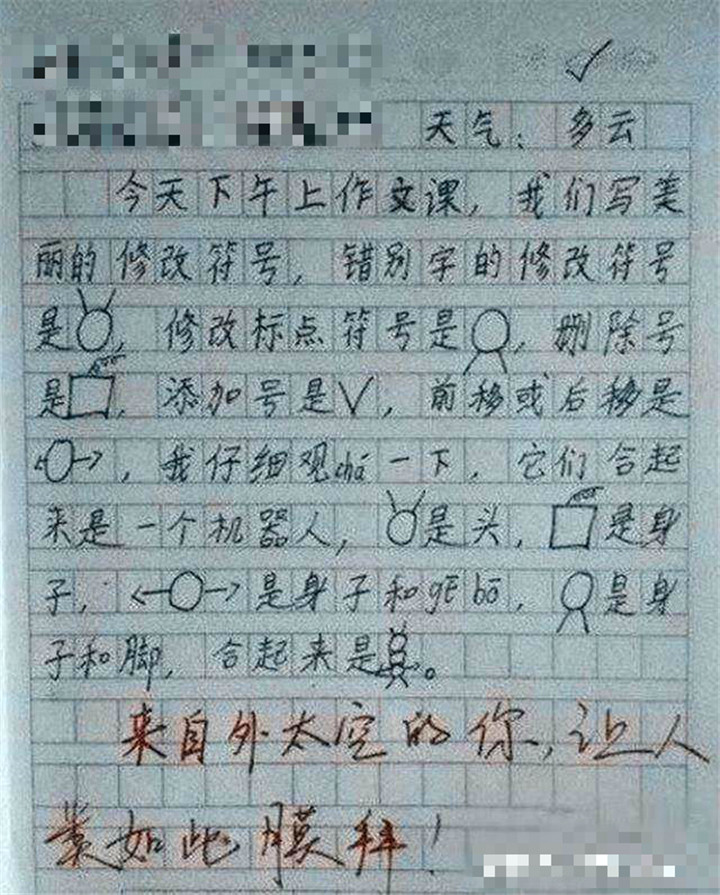 天气：多云
今天下午上作文课，我们写美
丽的修改符号，错别字的修改符号
是，修改标点符号是，删除号
是，添加号是∨，前移或后移是
，我仔细观chá一下，它们合起
来是一个机器人，是头，是身
子，←○→是身子和gē bō，是身
子和脚，合起来是。
来自外太空的你，让人
类如此膜拜！